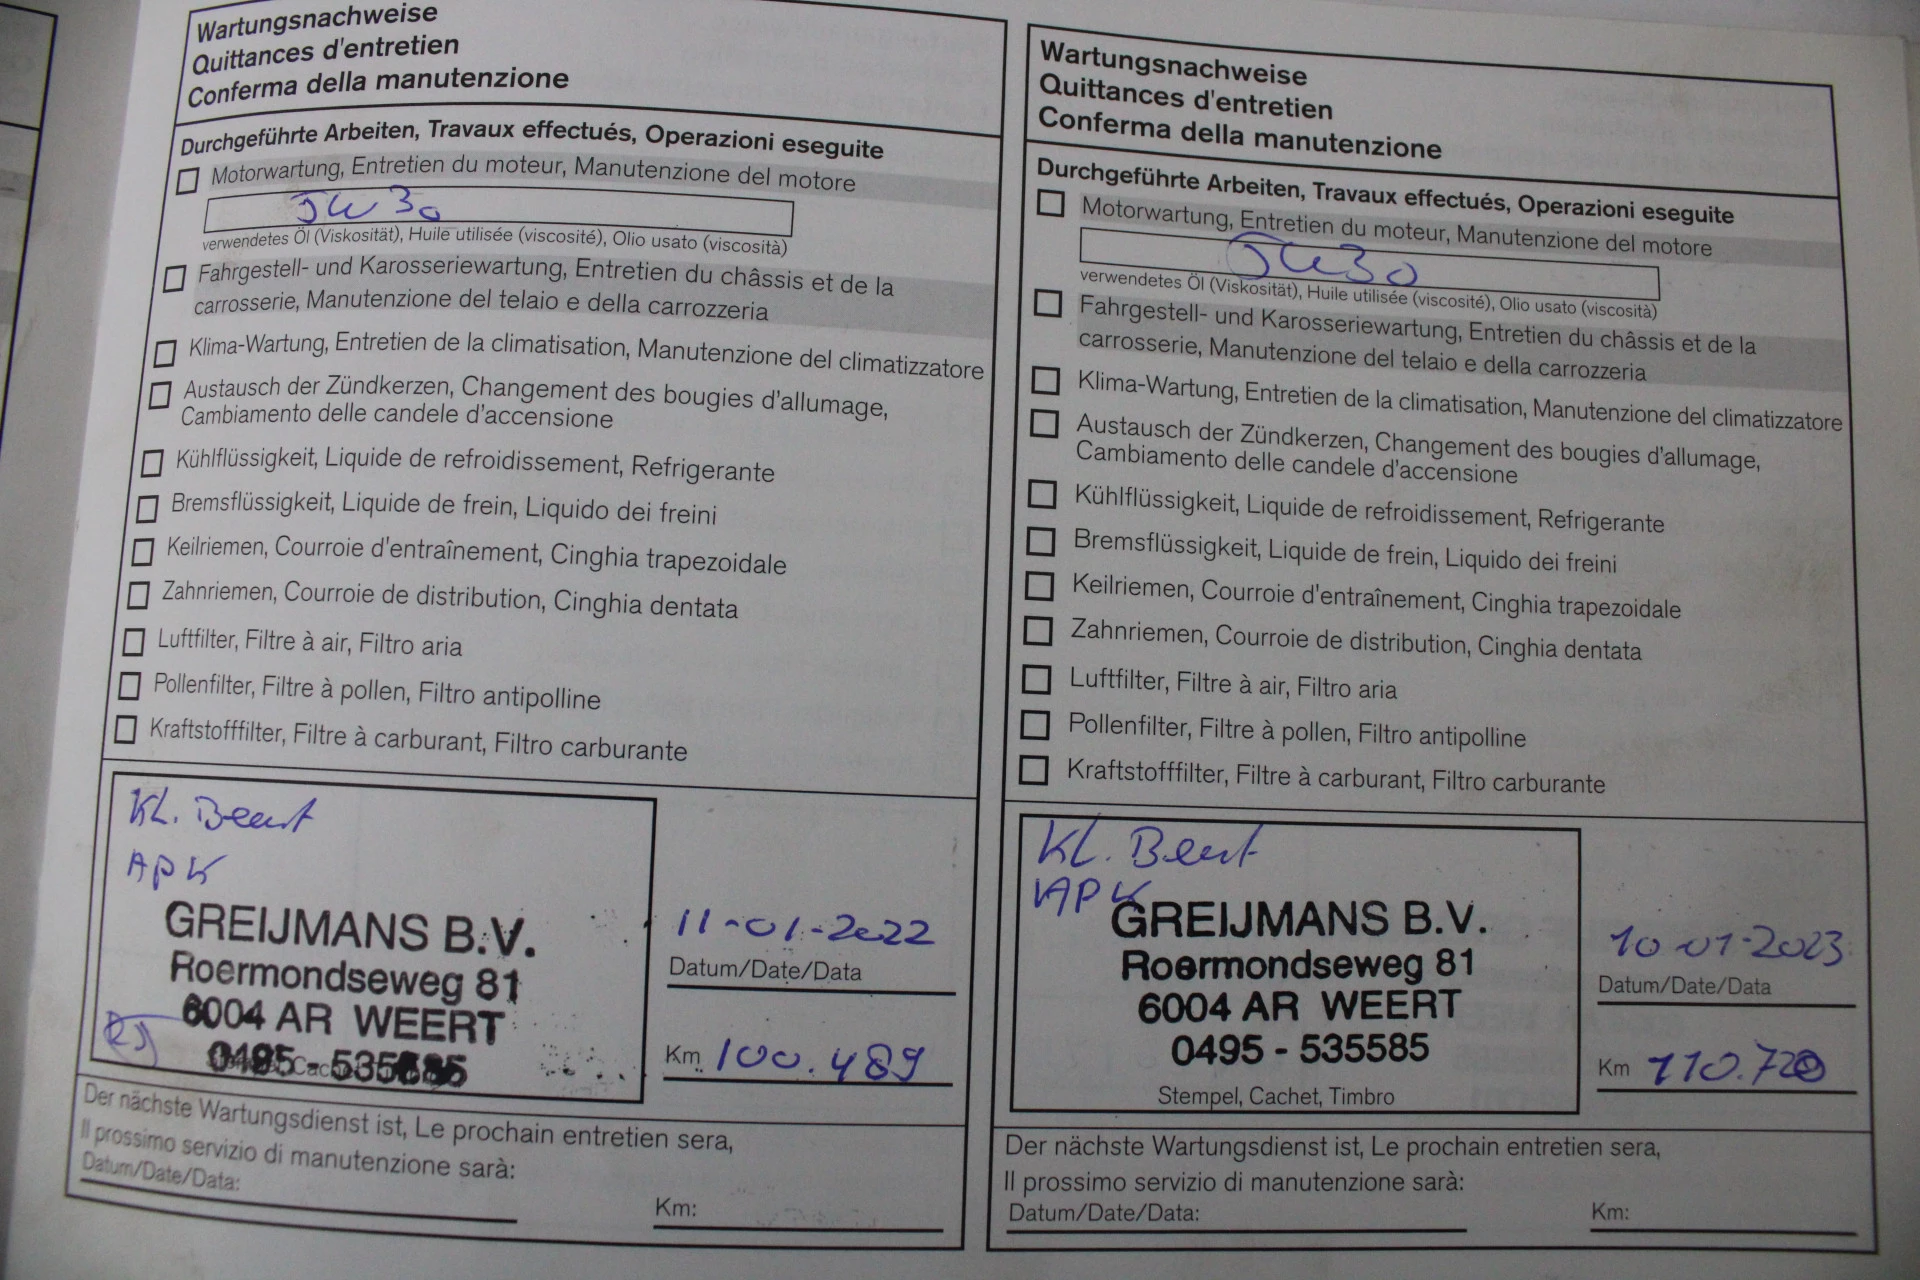 Wartungsnachweise
Quittances d'entretien
Conferma della manutenzione
Durchgeführte Arbeiten, Travaux effectués, Operazioni eseguite
Motorwartung, Entretien du moteur, Manutenzione del motore
5W30
verwendetes Öl (Viskosität), Huile utilisée (viscosité), Olio usato (viscosità)
Fahrgestell- und Karosseriewartung, Entretien du châssis et de la
carrosserie, Manutenzione del telaio e della carrozzeria
Klima-Wartung, Entretien de la climatisation, Manutenzione del climatizzatore
Austausch der Zündkerzen, Changement des bougies d'allumage,
Cambiamento delle candele d'accensione
Kühlflüssigkeit, Liquide de refroidissement, Refrigerante
Bremsflüssigkeit, Liquide de frein, Liquido dei freini
Keilriemen, Courroie d'entraînement, Cinghia trapezoidale
Zahnriemen, Courroie de distribution, Cinghia dentata
Luftfilter, Filtre à air, Filtro aria
Pollenfilter, Filtre à pollen, Filtro antipolline
Kraftstofffilter, Filtre à carburant, Filtro carburante
KL. Beurt
APK
GREIJMANS B.V.
Roermondseweg 81
6004 AR WEERT
0495 - 535585
11-01-2022
Datum/Date/Data
Km 100.489
Der nächste Wartungsdienst ist, Le prochain entretien sera,
Il prossimo servizio di manutenzione sarà:
Datum/Date/Data:
Km:
Wartungsnachweise
Quittances d'entretien
Conferma della manutenzione
Durchgeführte Arbeiten, Travaux effectués, Operazioni eseguite
Motorwartung, Entretien du moteur, Manutenzione del motore
5W30
verwendetes Öl (Viskosität), Huile utilisée (viscosité), Olio usato (viscosità)
Fahrgestell- und Karosseriewartung, Entretien du châssis et de la
carrosserie, Manutenzione del telaio e della carrozzeria
Klima-Wartung, Entretien de la climatisation, Manutenzione del climatizzatore
Austausch der Zündkerzen, Changement des bougies d'allumage,
Cambiamento delle candele d'accensione
Kühlflüssigkeit, Liquide de refroidissement, Refrigerante
Bremsflüssigkeit, Liquide de frein, Liquido dei freini
Keilriemen, Courroie d'entraînement, Cinghia trapezoidale
Zahnriemen, Courroie de distribution, Cinghia dentata
Luftfilter, Filtre à air, Filtro aria
Pollenfilter, Filtre à pollen, Filtro antipolline
Kraftstofffilter, Filtre à carburant, Filtro carburante
KL. Beurt
APK
GREIJMANS B.V.
Roermondseweg 81
6004 AR WEERT
0495 - 535585
Stempel, Cachet, Timbro
10-01-2023
Datum/Date/Data
Km 110.720
Der nächste Wartungsdienst ist, Le prochain entretien sera,
Il prossimo servizio di manutenzione sarà:
Datum/Date/Data:
Km: